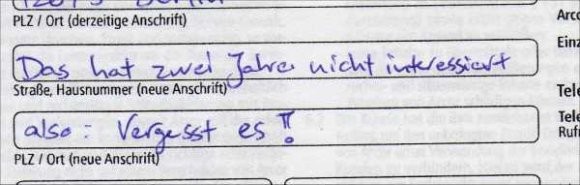 PLZ / Ort (derzeitige Anschrift)
Das hat zwei Jahre nicht interessiert
Straße, Hausnummer (neue Anschrift)
also: Vergesst es!!
PLZ / Ort (neue Anschrift)
Einz
Tele
Tele
Ruf